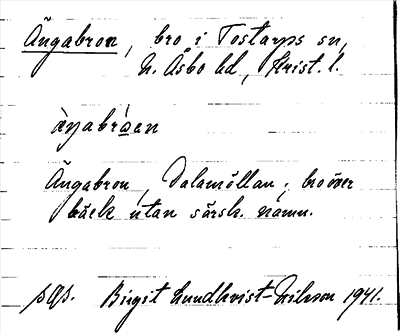 Ängabron, bro i Tostarps sn,
N. Åsbo hd, Krist. l.
Ängabron, Dalamöllan; bro över
bäck utan särsk. namn.
pgs. Birgit Lundkvist-Nilsson 1941.